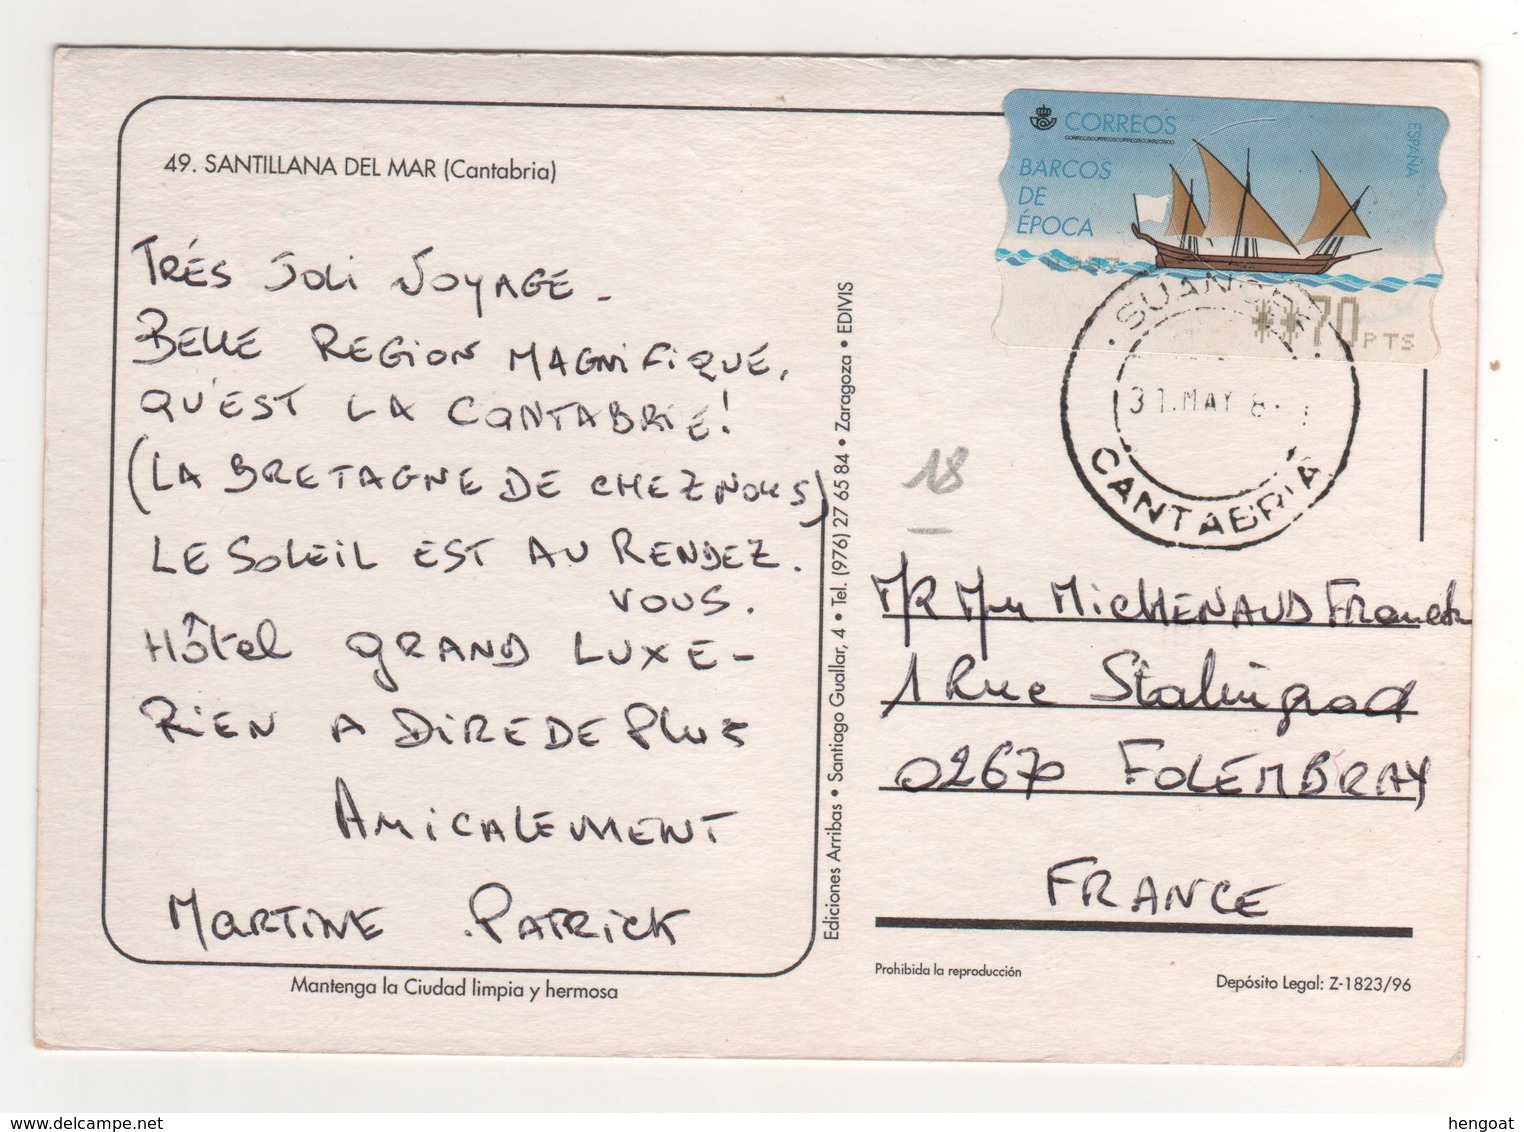 49. SANTILLANA DEL MAR (Cantabria)
TRÉS JOLI VOYAGE -
BELLE REGION MAGNIFIQUE,
QU'EST LA CANTABRIE!
(LA BRETAGNE DE CHEZ NOUS)
LE SOLEIL EST AU RENDEZ.
VOUS.
HÔtel GRAND LUXE -
RIEN A DIRE DE PLUS
AMICALEMENT
MARTINE . PATRICK
Mantenga la Ciudad limpia y hermosa
Ediciones Arribas • Santiago Guallar, 4 • Tel. (976) 27 65 84 • Zaragoza • EDIVIS
CORREOS
ESPAÑA
BARCOS
DE
ÉPOCA
**70 PTS
31.MAY 8
CANTABRIA
18
MR Mme MICHENAUD Franck
1 Rue Stalingrad
02670 FOLEMBRAY
FRANCE
Prohibida la reproducción
Depósito Legal: Z-1823/96
hengoat